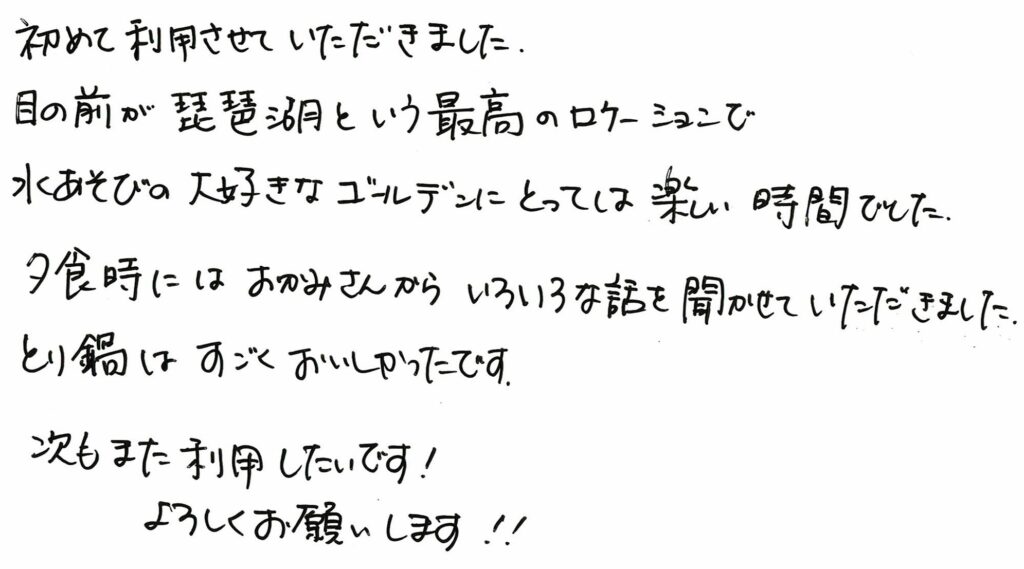 初めて利用させていただきました.
目の前が琵琶湖という最高のロケーションで
水あそびの大好きなゴールデンにとっては楽しい時間でした.
夕食時にはおかみさんからいろいろな話を聞かせていただきました.
とり鍋はすごくおいしかったです.
次もまた利用したいです!
よろしくお願いします!!